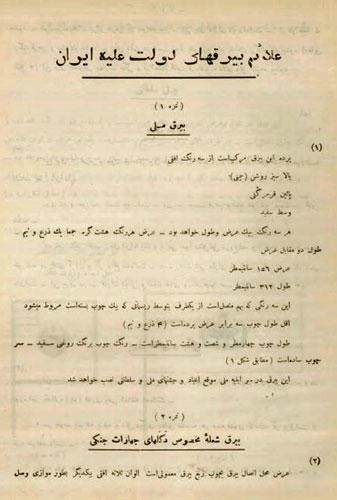 علائم بیرقهای دولت علیه ایران
(نمره ۱)
بیرق ملی
(۱)
پرده این بیرق مرکب‌است از سه رنگ افقی
بالا سبز روشن (چمنی)
پائین قرمز گلی
وسط سفید
هر سه رنگ بیك عرض وطول خواهد بود – عرض هررنگ هشت گره جمعا یك ذرع و نیم
طول دو مقابل عرض
عرض ۱۵۶ سانتیمطر
طول ۳۱۲ سانتیمطر
این سه رنگی که بهم متصل‌است از یکطرف بتوسط ریسمانی که بیك چوب بسته‌است مربوط میشود
اقل طول چوب سه برابر عرض پرده‌است (۴ ذرع و نیم)
طول چوب چهارمطر و شصت و هشت سانتیمطراست – رنگ چوب برنگ روغنی سفید – سر
چوب ساده‌است (مطابق شکل ۱)
این بیرق در سر ابنیه ملی موقع اعیاد و جشنهای ملی و سلطنتی نصب خواهد شد
(نمره ۲)
بیرق شعلهٔ مخصوص دکلهای جهازات جنگی
(۲)
عرض محل اتصال بیرق بچوب ربع بیرق معمولی‌است الوان ثلاثه افقی یکدیگر بطور موازی وصل